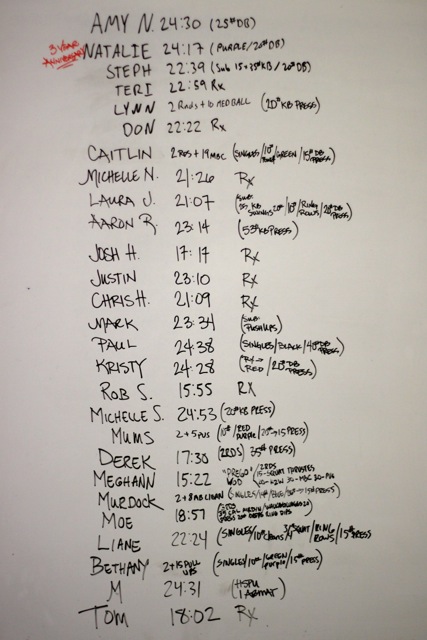 AMY N. 24:30 (25# DB)
3 YEAR ANNIVERSARY
NATALIE 24:17 (PURPLE/20# DB)
STEPH 22:39 (SUB 15+25# KB / 20# DB)
TERI 22:59 Rx
LYNN 2 Rnds + 10 MED BALL (20# KB PRESS)
DON 22:22 Rx
CAITLIN 2 RDS + 19 MBC (SINGLES/10# /GREEN/15# DB PRESS)
MICHELLE N. 21:26 Rx
LAURA J. 21:07 (SUB: KB SWINGS 20#/10#/RING ROWS/20# DB PRESS)
AARON R. 23:14 (53# KB PRESS)
JOSH H. 17:17 Rx
JUSTIN 23:10 Rx
CHRIS H. 21:09 Rx
MARK 23:34 (SUB: PUSHUPS)
PAUL 24:38 (SINGLES/BLACK/40# DB PRESS)
KRISTY 24:28 (Rx → RED / 20# DB PRESS)
ROB S. 15:55 RX
MICHELLE S. 24:53 (20# KB PRESS)
MUMS 2+5 PUS (10#/RED PURPLE/20#→15 PRESS)
DEREK 17:30 (2RDS) 35# PRESS)
MEGHANN 15:22 "PREGO" WOD / 2RDS 15-SQUAT THRUSTES 30-MBC 30-PU
MURDOCK 2+8 MB CLEAN (SINGLES/14#/BLUE/ → 15# PRESS)
MOE 18:57 RING DIPS
LIANE 22:24 (SINGLES/10# cleans / SQUAT/RING ROWS/15# PRESS
BETHANY 2+15 PULL UPS (SINGLES/10#/GREEN/PURPLE/15# PRESS)
M 24:31 (HSPU 1 ABMAT)
TOM 18:02 Rx